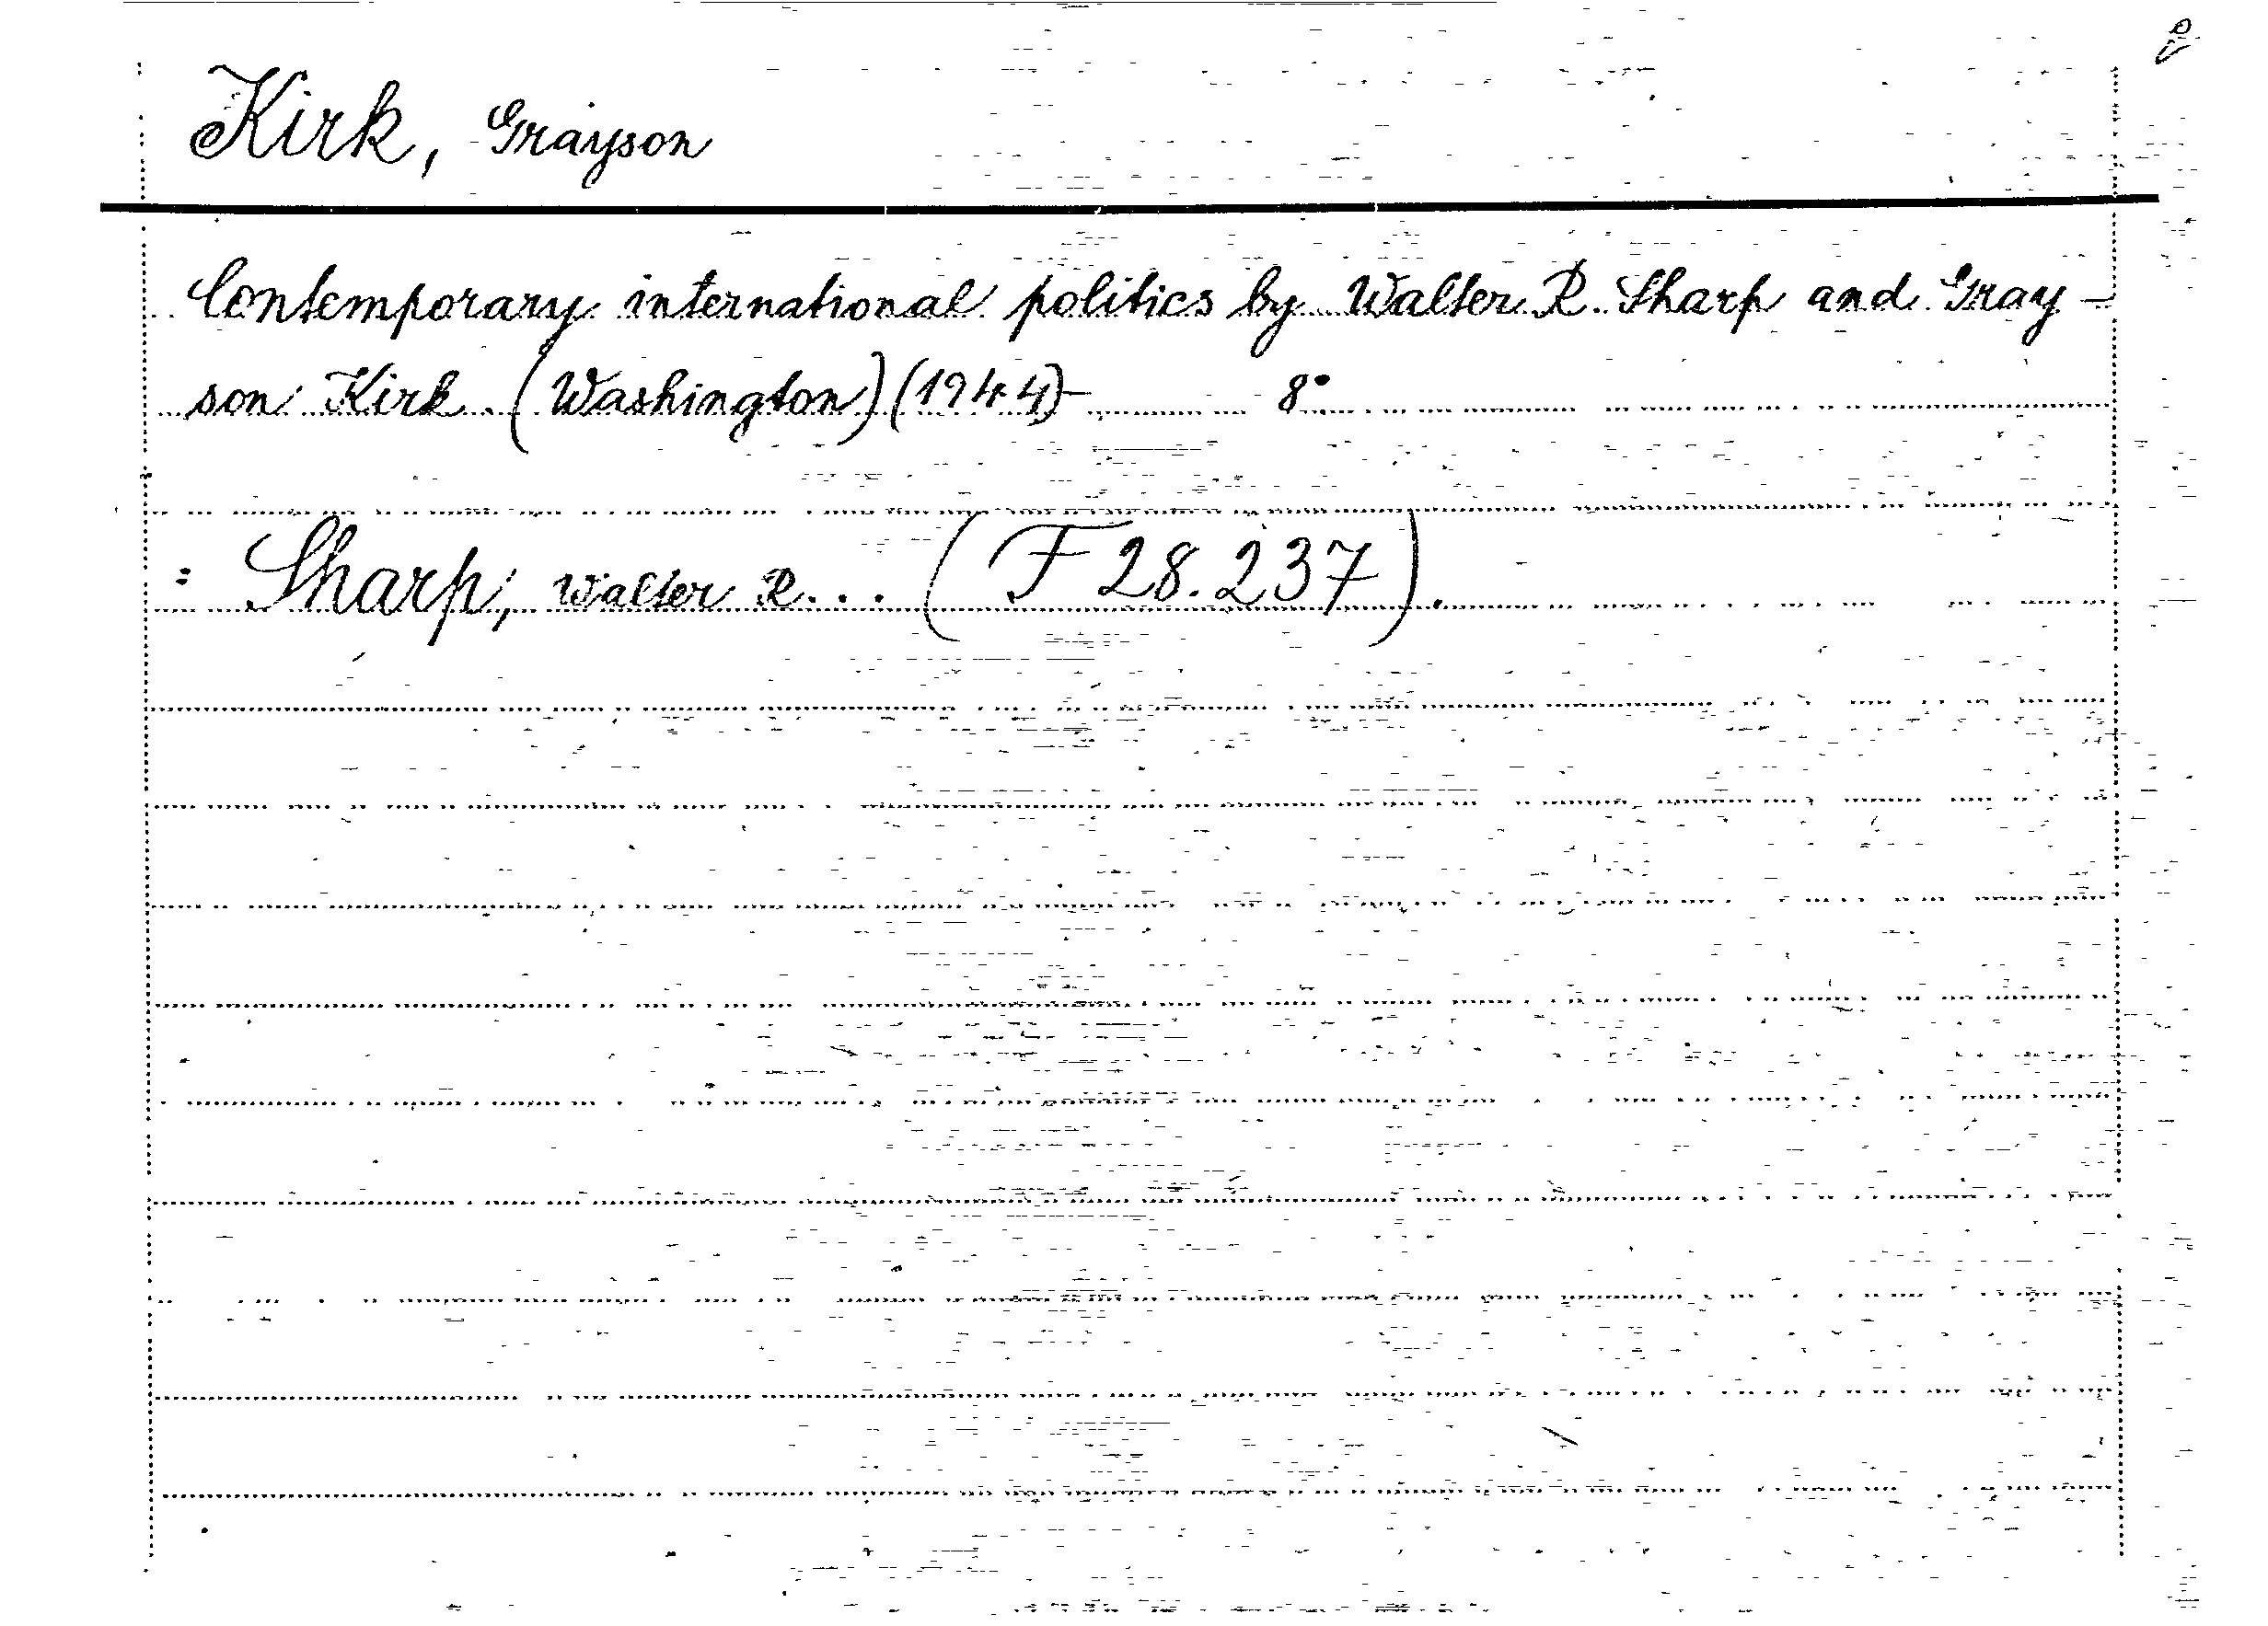 Kirk, Grayson
Contemporary international politics by Walter R. Sharp and Gray-
son Kirk. (Washington) (1944)- 8°.
: Sharp, Walter R... (F 28.237).